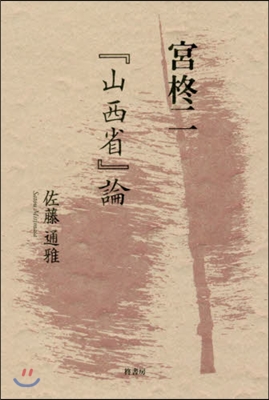 宮柊二
『山西省』論
佐藤通雅
Sato Michimasa
柊書房